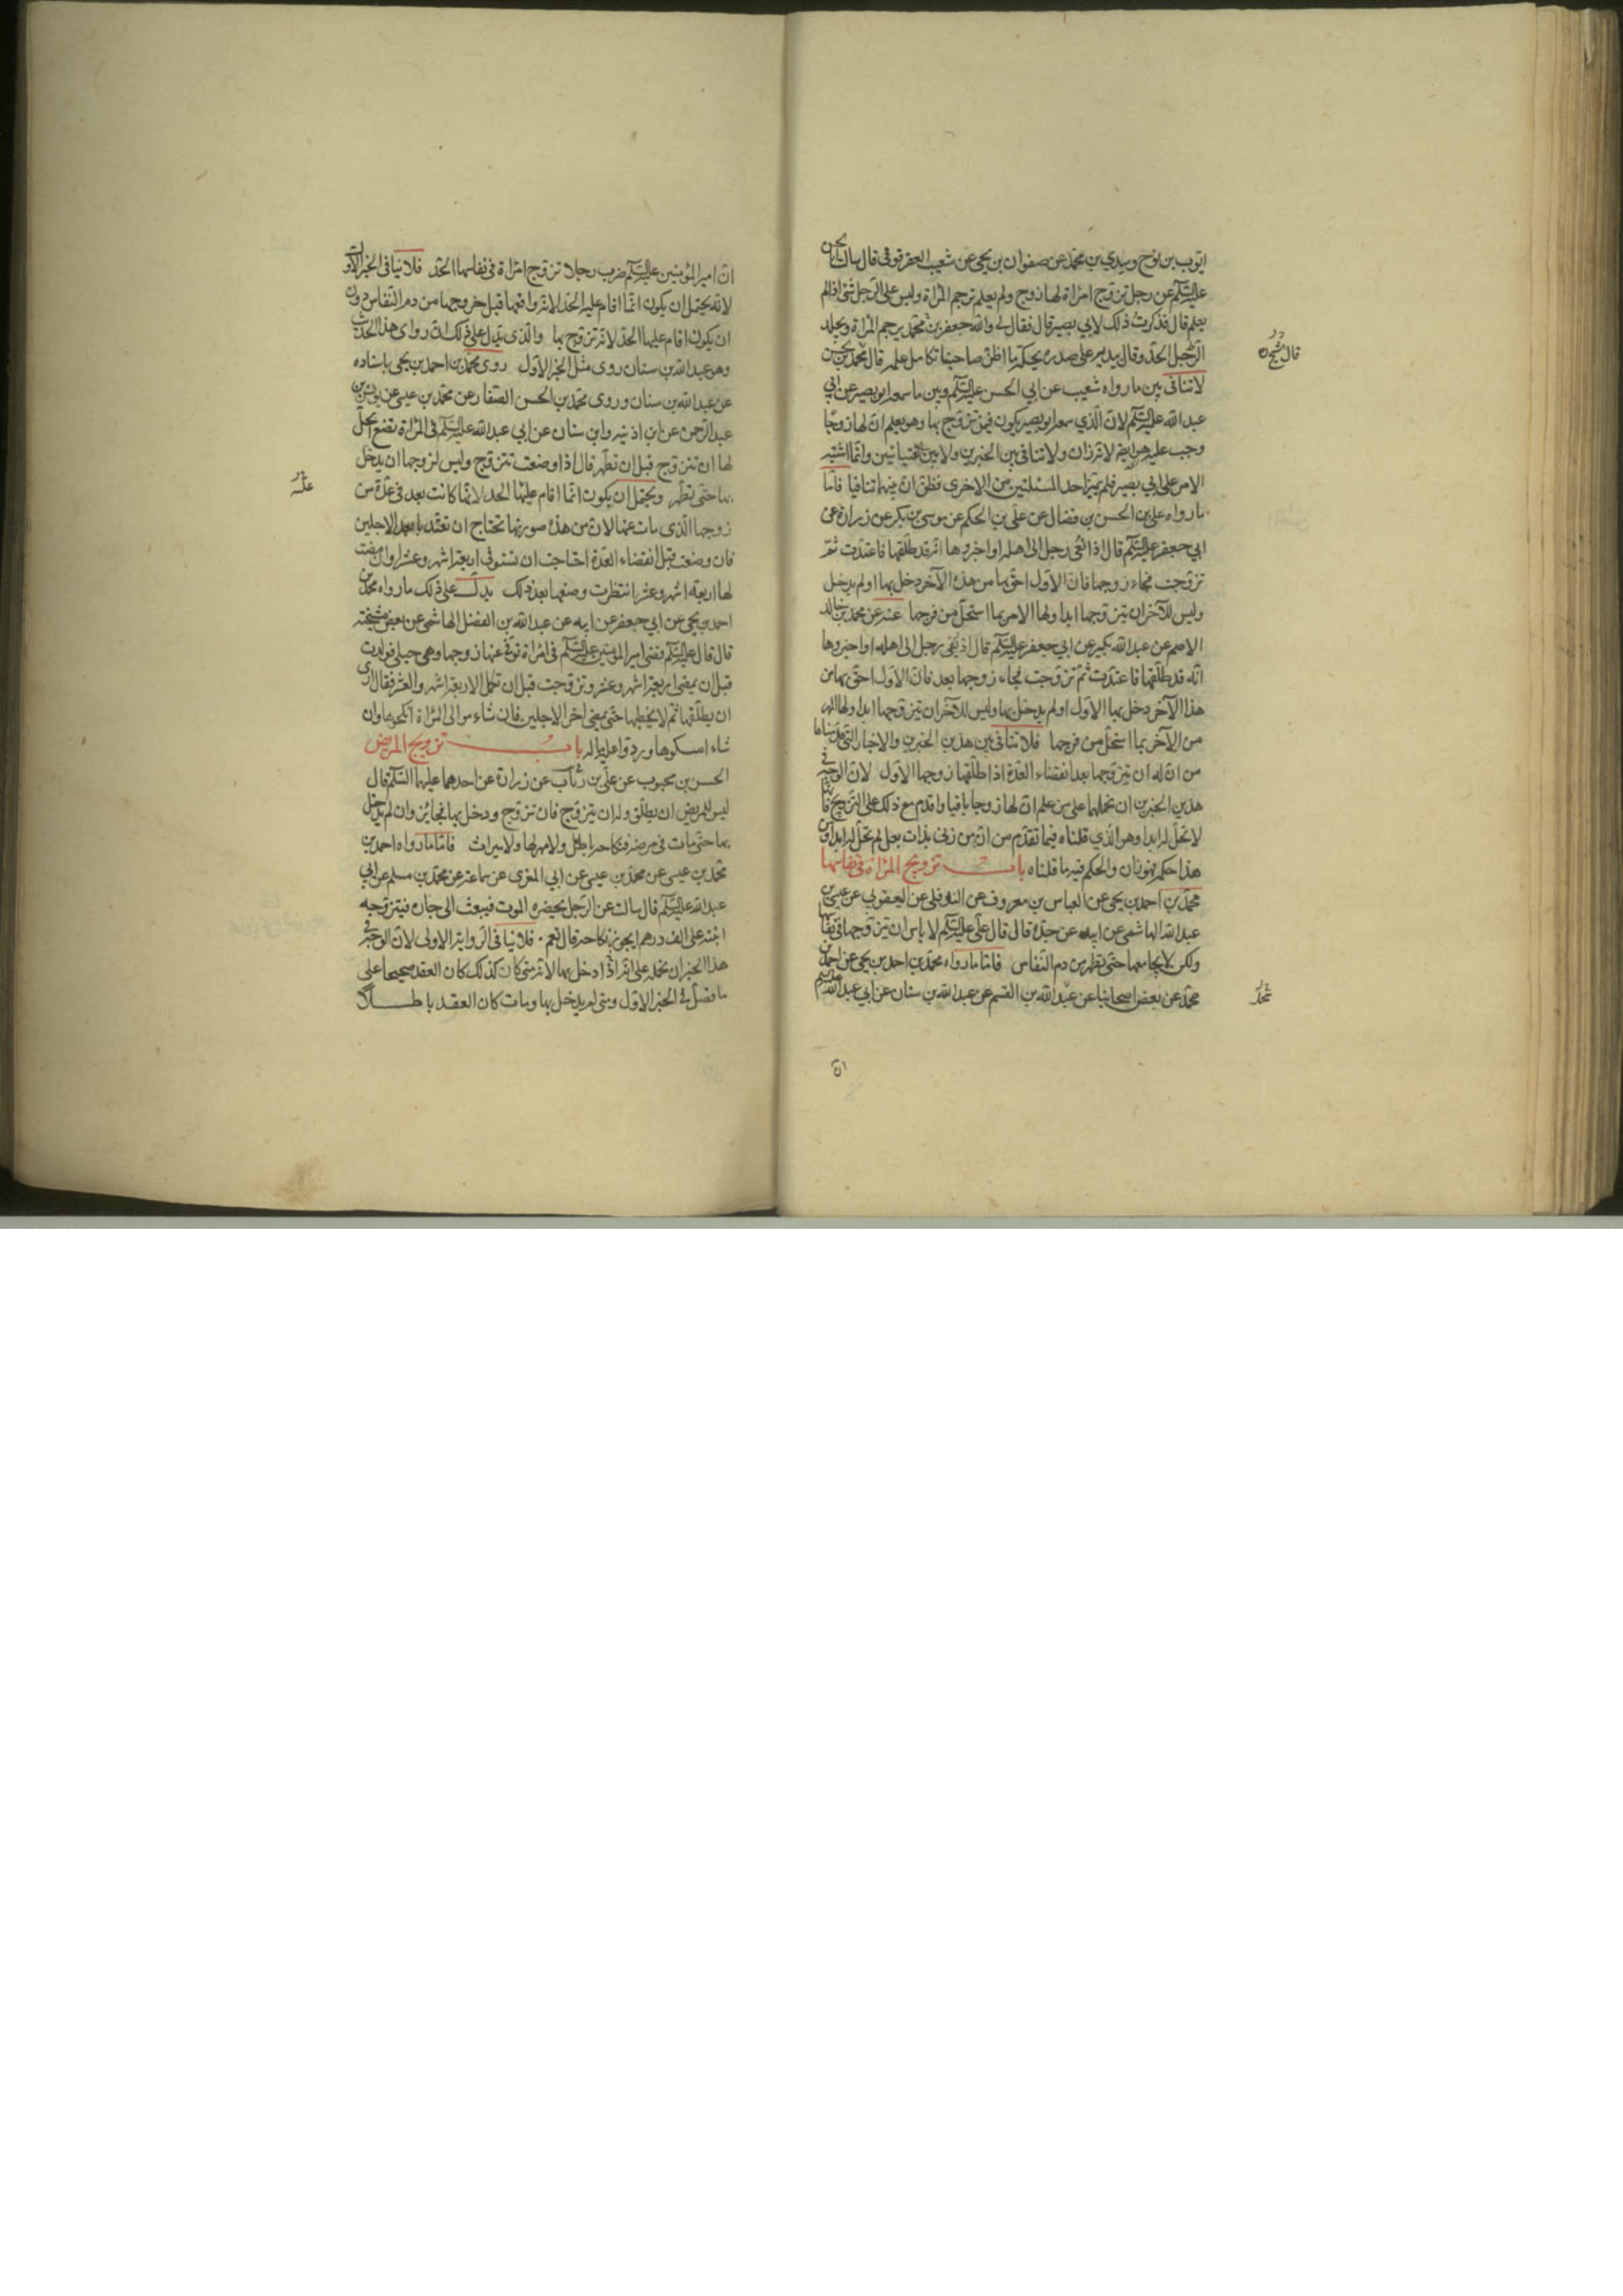 ايوب بن نوح وسندي بن محمد عن صفوان بن يحيى عن شعيب العقرقوفي قال سالت ابا الحسن
عليه السلم عن رجل تزوج امراة لها زوج ولم يعلم قال ترجم المراة وليس على الرجل شئ اذا لم
يعلم قال فذكرت ذلك لابي بصير قال فقال لي والله جعفر بن محمد ترجم المراة ويجلد
الرجل الحد وقال بيده على صدره يحكه ما اظن صاحبنا تكامل علمه قال محمد بن الحسن
لا تنافى بين ما رواه شعيب عن ابي الحسن عليه السلم وبين ما سمعه ابو بصير عن ابي
عبد الله عليه السلم لان الذي سمعه ابو بصير يكون فيمن تزوج بها وهو يعلم ان لها زوجا
وجب عليه لانه زان ولا تنافى بين الخبرين ولا بين الفتيائين وانما اشتبه
الامر على ابي بصير فلم يميز احد المسئلتين من الاخرى فظن ان بينهما تنافيا فاما
ما رواه علي بن الحسن بن فضال عن علي بن الحكم عن موسى بن بكر عن زرارة عن
ابي جعفر عليه السلم قال اذا نعى رجل الى اهله او اخبروها انه قد طلقها فاعتدت ثم
تزوجت فجاء زوجها فان الاول احق بها من هذا الآخر دخل بها او لم يدخل
وليس للآخر ان يتزوجها ابدا ولها المهر بما استحل من فرجها عنه عن محمد بن خالد
الاصم عن عبد الله بن بكير عن ابي جعفر عليه السلم قال اذا نعى رجل الى اهله او اخبروها
انه قد طلقها فاعتدت ثم تزوجت فجاء زوجها بعد فان الاول احق بها من
هذا الآخر دخل بها الاول او لم يدخل بها وليس للآخر ان يتزوجها ابدا ولها المهر
من الآخر بما استحل من فرجها فلا تنافى بين هذين الخبرين والاخبار التي قدمناها
من ان له ان يتزوجها بعد انقضاء العدة اذا طلقها زوجها الاول لان الوجه في
هذين الخبرين ان نحملهما على من علم ان لها زوجا باقيا واقدم مع ذلك على التزويج فانها
لا تحل له ابدا وهو الذي قلناه فيما تقدم من انه من زنى بذات بعل لم تحل له ابدا ومن
هذا حكمه فهو زان والحكم فيه ما قلناه باب تزويج المراة في نفاسها
محمد بن احمد بن يحيى عن العباس بن معروف عن النوفلي عن اليعقوبي عن عيسى بن
عبد الله الهاشمي عن ابيه عن جده قال قال علي عليه السلم لا باس ان يتزوجها في نفاسها
ولكن لا يجامعها حتى تطهر من دم النفاس فاما ما رواه محمد بن احمد بن يحيى عن احمد بن
محمد عن بعض اصحابنا عن عبد الله بن القسم عن عبد الله بن سنان عن ابي عبد الله عليه السلم
ان
ان امير المؤمنين عليه السلم ضرب رجلا تزوج امراة في نفاسها الحد فلا ينافى الخبر الاول
لانه يحتمل ان يكون انما اقام عليه الحد لانه واقعها قبل خروجها من دم النفاس دون
ان يكون اقام عليها الحد لانه تزوج بها والذي يدل على ذلك ان روى هذا الحديث
وهو عبد الله بن سنان روى مثل الخبر الاول روى محمد بن احمد بن يحيى باسناده
عن عبد الله بن سنان وروى محمد بن الحسن الصفار عن محمد بن عيسى عن يونس بن
عبد الرحمن عن ابن اذنيه وابن سنان عن ابي عبد الله عليه السلم في المراة تضع يحل
لها ان تتزوج قبل ان تطهر قال اذا وضعت تتزوج وليس لزوجها ان يدخل
بها حتى تطهر ويحتمل ان يكون انما اقام عليها الحد لانها كانت بعد في عدة من
زوجها الذي مات عنها لان من هذه صورتها تحتاج ان تعتد بابعد الاجلين
فان وضعت قبل انقضاء العدة احتاجت ان تستوفى اربعة اشهر وعشرا وان مضت
لها اربعة اشهر وعشر انتظرت وضعها بعد ذلك يدل على ذلك ما رواه محمد بن
احمد بن يحيى عن ابي جعفر عن ابيه عن عبد الله بن الفضل الهاشمي عن بعض مشيخته
قال قال عليه السلم قضى امير المؤمنين عليه السلم في امراة توفى عنها زوجها وهي حبلى فولدت
قبل ان يمضى اربعة اشهر وعشر وتزوجت قبل ان تكمل الاربعة اشهر والعشر فقال ارى
ان يطلقها ثم لا يخطبها حتى يمضى اخر الاجلين فان شاء موالى المراة انكحوها وان
شاء امسكوها وردوا عليه ماله باب تزويج المريض
الحسن بن محبوب عن علي بن رئاب عن زرارة عن احدهما عليهما السلم قال
ليس للمريض ان يطلق وله ان يتزوج فان تزوج ودخل بها فجائز وان لم يدخل
بها حتى مات في مرضه فنكاحه باطل ولا مهر لها ولا ميراث فاما ما رواه احمد بن
محمد بن عيسى عن محمد بن عيسى عن ابي المغرى عن سماعة عن محمد بن مسلم عن ابي
عبد الله عليه السلم قال سالت عن الرجل يحضره الموت فيبعث الى جاره فيتزوجه
ابنته على الف درهم ايجوز نكاحه قال نعم فلا ينافى الرواية الاولى لان الوجه في
هذا الخبر ان نحمله على انه اذا دخل بها لانه متى كان كذلك كان العقد صحيحا على
ما فصل في الخبر الاول ومتى لم يدخل بها ومات كان العقد باطلا